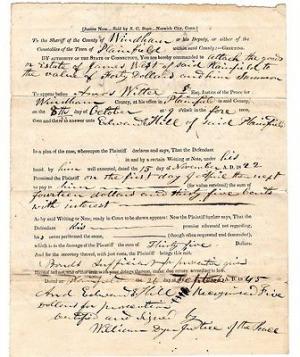 [Justice Note. Sold by S. C. Starr, Norwich City, Conn.]
To the Sheriff of the County of Windham his Deputy, or either of the
Constables of the Town of Plainfield within said County:—GREETING.
BY AUTHORITY OF THE STATE OF CONNECTICUT, You are hereby commanded to attach the goods
or Estate of James West of said Plainfield to
the value of Forty Dollars and him Summon
To appear before Amos Witter Esq. Justice of the Peace for
Windham County, at his office in Plainfield in said County,
on the 8th day of October 9 o'clock in fore noon,
then and there to answer unto Edward Hill of said Plainfield
In a plea of the case, whereupon the Plaintiff declares and says, That the Defendant
in and by a certain Writing or Note, under his hand
by him well executed, dated the 15 day of November A.D. 1822
Promised the Plaintiff on the first day of April the next
to pay to him (for value received) the sum of
fourteen dollars and thirty five cents
with interest
As by said Writing or Note, ready in Court to be shewn appears: Now the Plaintiff further says, That
the Defendant his promise aforesaid not regarding,
has never performed the same, (though often requested and demanded)
which is to the damage of the Plaintiff the sum of Thirty five Dollars,
And for the recovery thereof, with just costs, the Plaintiff brings this suit.
Bonds sufficient for prosecution
Dated at Plainfield 26 September A.D. 1845
And Edward Hill Recognized Five
Dollars for prosecution
certified and signed by
William Dyer Justice of the Peace